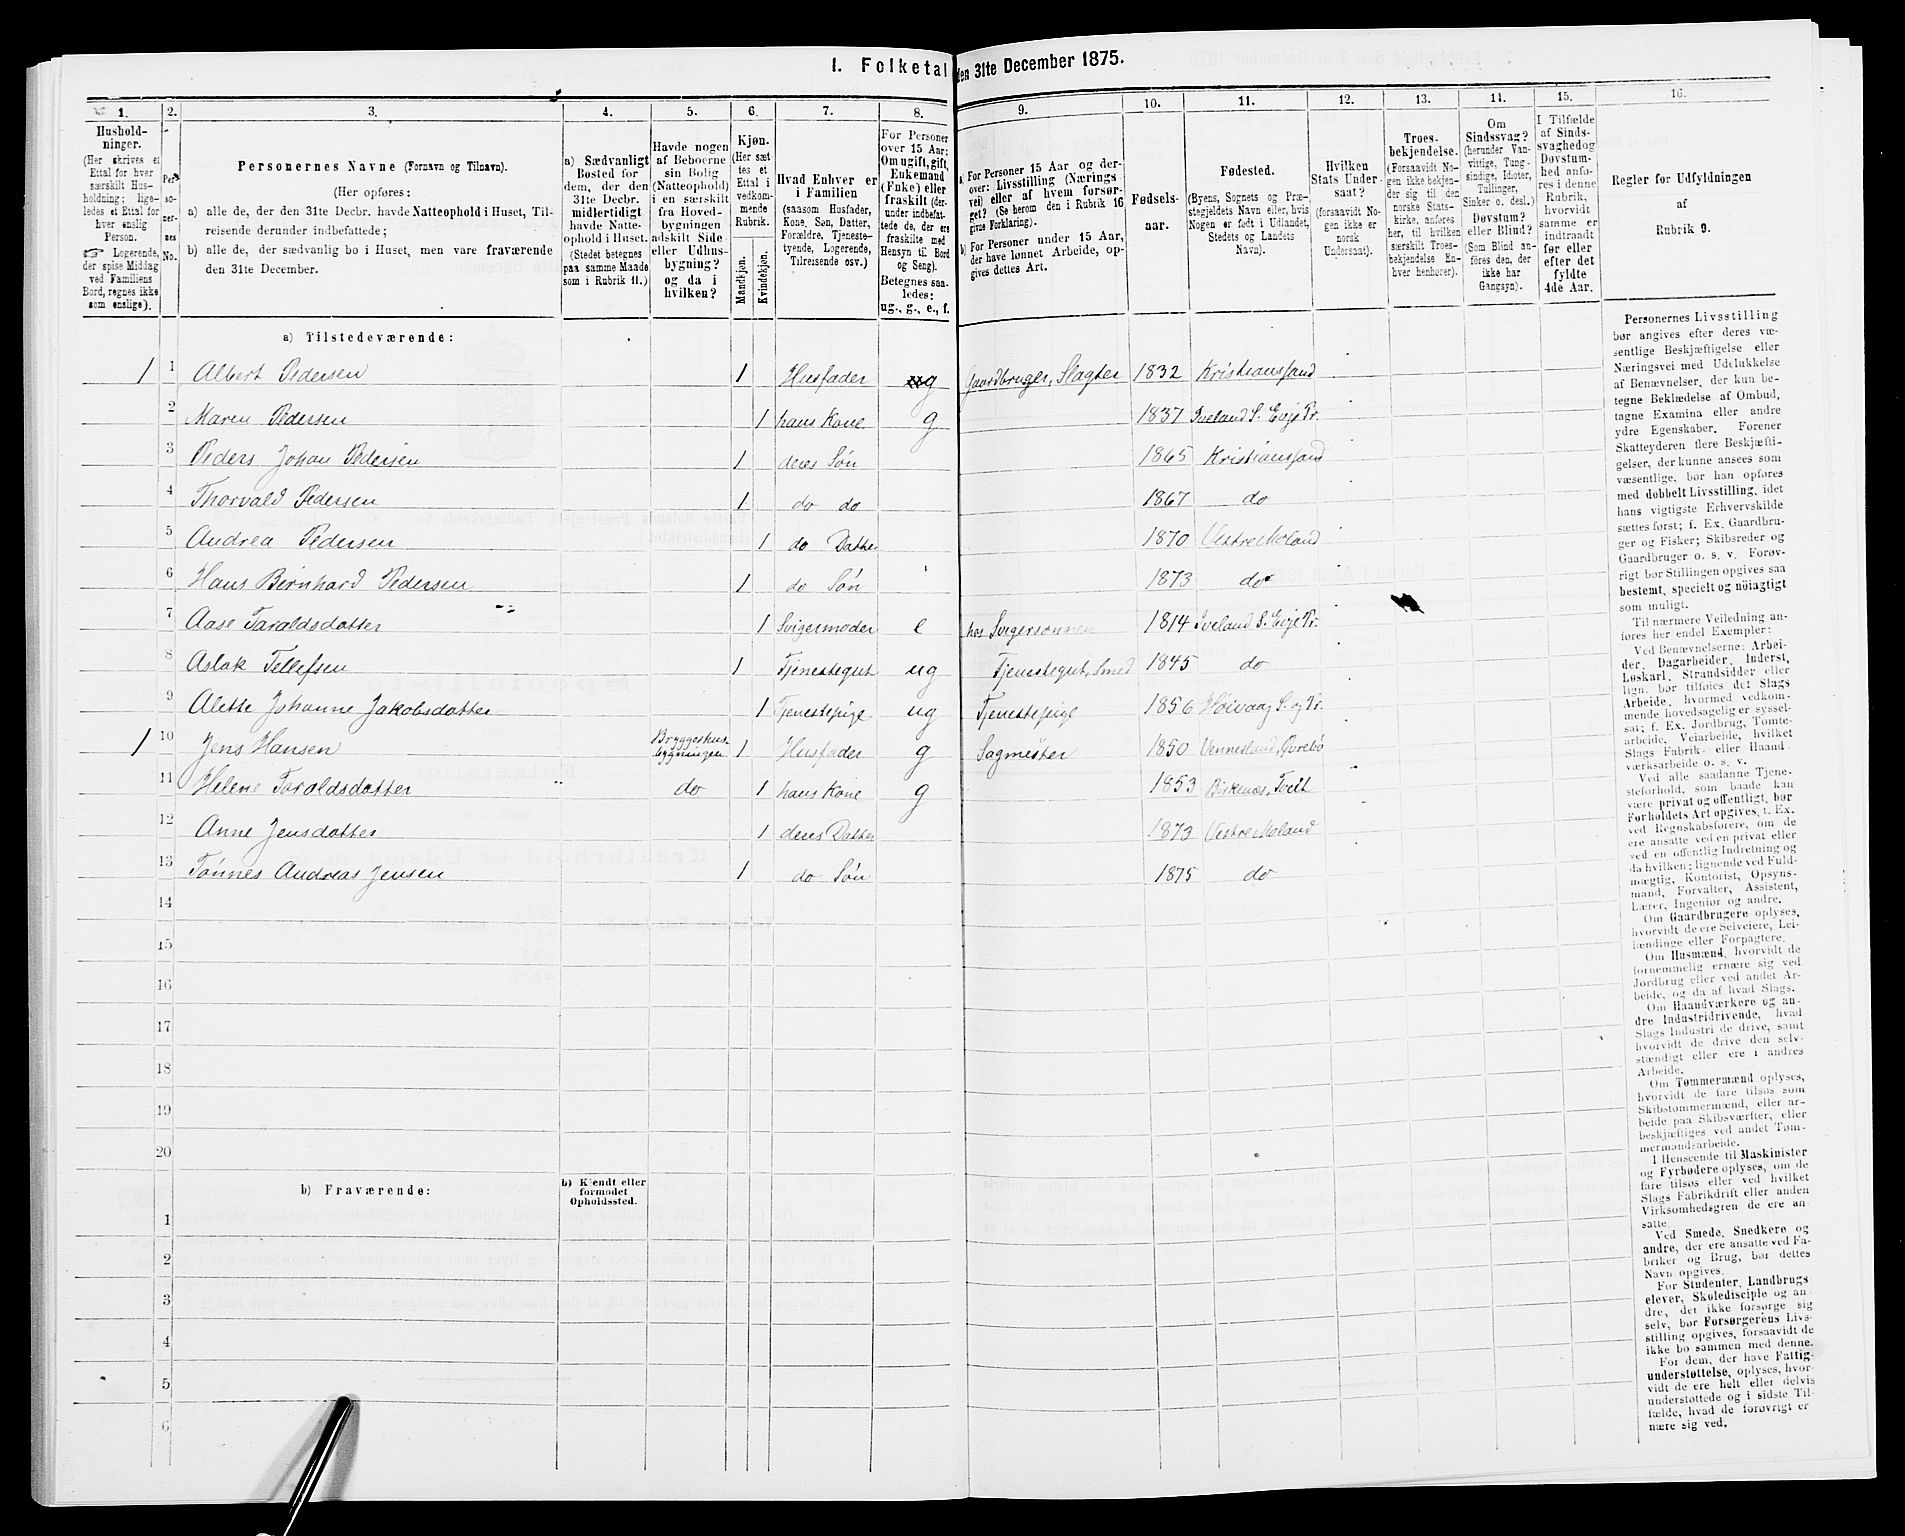 1. Folketal den 31te December 1875.
1. 2. 3. 4. 5. 6. 7. 8. 9. 10. 11. 12. 13. 14. 15. 16.
Hushold-
ninger.
(Her skrives et
Ettal for hver
særskilt Hus-
holdning; lige-
ledes et Ettal for
hver enslig
Person.
☞ Logerende,
der spise Middag
ved Familiens
Bord, regnes ikke
som enslige).
Per-
so-
ner-
nes
No.
Personernes Navne (Fornavn og Tilnavn).
(Her opføres:
a) alle de, der den 31te Decbr. havde Natteophold i Huset, Til-
reisende derunder indbefattede;
b) alle de, der sædvanlig bo i Huset, men vare fraværende
den 31te December.
a) Sædvanligt
Bosted for
dem, der den
31te Decbr.
midlertidigt
havde Natte-
ophold i Huset.
(Stedet betegnes
paa samme Maade
som i Rubrik 11.)
Havde nogen
af Beboerne
sin Bolig
(Natteophold)
i en særskilt
fra Hoved-
bygningen
adskilt Side-
eller Udhus-
bygning?
og da i
hvilken?
Kjøn.
(Her sæt-
tes et
Ettal i
vedkom-
mende
Rubrik.
Mandkjøn.
Kvindekjøn.
Hvad Enhver er
i Familien
(saasom Husfader,
Kone, Søn, Datter,
Forældre, Tjeneste-
tyende, Logerende,
Tilreisende osv.)
For Personer
over 15 Aar:
Om ugift, gift,
Enkemand
(Enke) eller
fraskilt (der-
under indbefat-
tede de, der ere
fraskilte med
Hensyn til Bord
og Seng).
Betegnes saa-
ledes:
ug., g., e., f.
a) For Personer 15 Aar og der-
over: Livsstilling (Nærings
vei) eller af hvem forsør-
get? (Se herom den i Rubrik 16
givne Forklaring).
b) For Personer under 15 Aar,
der have lønnet Arbeide, op-
gives dettes Art.
Fødsels-
aar.
Fødested.
(Byens, Sognets og Præ-
stegjeldets Navn eller, hvis
Nogen er født i Udlandet,
Stedets og Landets
Navn).
Hvilken
Stats Under-
saat?
(forsaavidt No-
gen ikke er
norsk
Undersaat).
Troes-
bekjendelse.
(Forsaavidt No-
gen ikke bekjen-
der sig til den
norske Stats-
kirke, anføres
her, til hvilken
særskilt Troes-
bekjendelse En-
hver henhører).
Om
Sindssvag?
(herunder Van-
vittige, Tung-
sindige, Idioter,
Tullinger,
Sinker o. desl.)
Døvstum?
eller Blind?
(Som Blind an-
føres den, der
ikke har
Gangsyn).
I Tilfælde
af Sinds-
svaghed og
Døvstum-
hed anfø-
res i denne
Rubrik,
hvorvidt
samme er
indtraadt
før eller
efter det
fyldte
4de Aar.
Regler for Udfyldningen
af
Rubrik 9.
a) Tilstedeværende:
1 1 Albert Pedersen 1 Husfader g Gaardbruger, Slagter 1832 Kristiansand
2 Maren Pedersen 1 hans Kone g 1837 Iveland S. Evje Pr.
3 Peders Johan Pedersen 1 deres Søn 1865 Kristiansand
4 Thorvald Pedersen 1 do do 1867 do
5 Andrea Pedersen 1 do Datter 1870 Vestre Moland
6 Hans Bernhard Pedersen 1 do Søn 1873 do
7 Aase Taraldsdatter 1 Svigermoder e hos Svigersønnen 1814 Iveland S. Evje Pr.
8 Aslak Tellefsen 1 Tjenestegut ug Tjenestegut, Smed 1845 do
9 Alette Johanne Jakobsdatter 1 Tjenestepige ug Tjenestepige 1856 Høivaag S. og Pr.
1 10 Jens Hansen Bryggeshus-bygningen 1 Husfader g Sagmester 1850 Vennesland, Øvrebø
11 Helene Taraldsdatter do 1 hans Kone g 1853 Birkenæs, Tvedt
12 Anne Jensdatter 1 deres Datter 1873 Vestre Moland
13 Tønnes Andreas Jensen 1 do Søn 1875 do
14
15
16
17
18
19
20
b) Fraværende:
b) Kjendt eller
formodet
Opholdssted.
1
2
3
4
5
6
Personernes Livsstilling
bør angives efter deres væ-
sentlige Beskjæftigelse eller
Næringsvei med Udelukkelse
af Benævnelser, der kun be-
tegne Beklædelse af Ombud,
tagne Examina eller andre
ydre Egenskaber. Forener
Skatteyderen flere Beskjæfti-
gelser, der kunne ansees som
væsentlige, bør han opføres
med dobbelt Livsstilling, idet
hans vigtigste Erhvervskilde
sættes først; f. Ex. Gaardbru-
ger og Fisker; Skibsreder og
Gaardbruger o. s. v. Forøv-
rigt bør Stillingen opgives saa
bestemt, specielt og nöiagtigt
som muligt.
Til nærmere Veiledning an-
føres her endel Exempler:
Ved Benævnelserne: Arbei-
der, Dagarbeider, Inderst,
Løskarl, Strandsidder eller
lign. bør tilføies det Slags
Arbeide, hvormed vedkom-
mende hovedsagelig er syssel-
sat; f. Ex. Jordbrug, Tomte-
arbeide, Veiarbeide, hvilket
Slags Fabrik- eller Haand-
værksarbeide o. s. v.
Ved alle saadanne Tjene-
steforhold, som baade kan
være privat og offentligt, bør
Forholdets Art opgives, t. Ex.
ved Regnskabsførere, om de
ere ansatte ved en privat eller
ved en offentlig Indretning og
da hvilken; lignende ved Fuld-
mægtig, Kontorist, Opsyns-
mand, Forvalter, Assistent,
Lærer, Ingeniør og andre.
Om Gaardbrugere oplyses,
hvorvidt de ere Selveiere, Lei-
lændinge eller Forpagtere.
Om Husmænd, hvorvidt de
fornemmelig ernære sig ved
Jordbrug eller ved andet Ar-
beide, og da af hvad Slags.
Om Haandværkere og an-
dre Industridrivende, hvad
Slags Industri de drive, samt
hvorvidt de drive den selv-
stændigt eller ere i andres
Arbeide.
Om Tømmermænd oplyses,
hvorvidt de fare tilsøs som
Skibstømmermænd, eller ar-
beide paa Skibsværfter, eller
beskjæftiges ved andet Tøm-
mermandsarbeide.
I Henseende til Maskinister
og Fyrbødere oplyses, om de
fare tilsøs eller ved hvilket
Slags Fabrikdrift eller anden
Virksomhedsgren de ere an-
satte.
Ved Smede, Snedkere og
andre, der ere ansatte ved Fa-
briker og Brug, bør dettes
Navn opgives.
For Studenter, Landbrugs
elever, Skoledisciple og an-
dre, det ikke forsørge sig
selv, bør Forsørgerens Livs-
stilling opgives, forsaavidt de
ikke bo sammen med denne.
For dem, der have Fattig-
understøttelse, oplyses, hvor-
vidt de ere helt eller delvis
understøttede og i sidste Til-
fælde, hvad de forøvrigt er
nære sig ved.